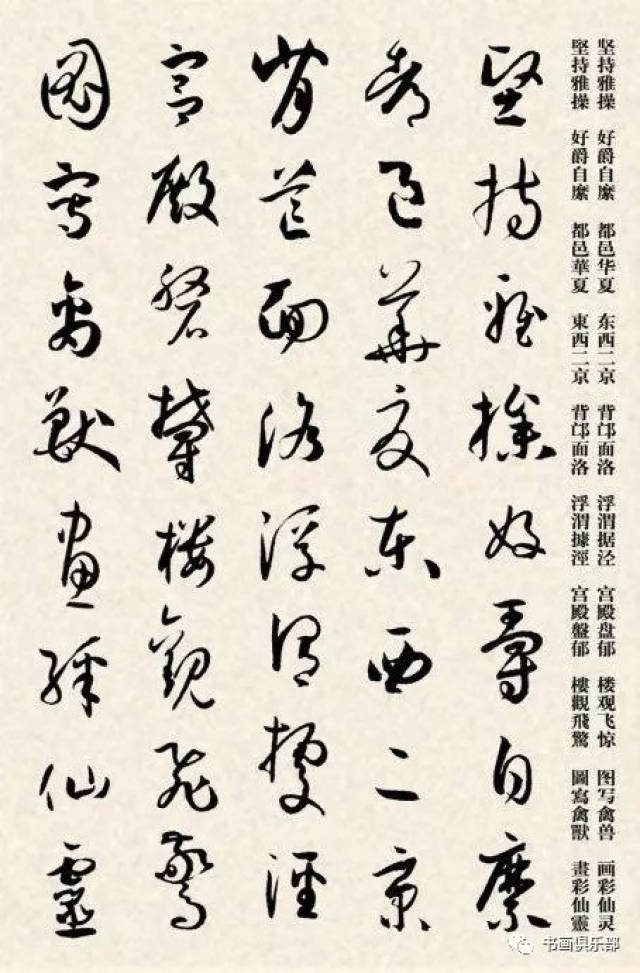 坚持雅操 好爵自縻 都邑华夏 东西二京 背邙面洛 浮渭据泾 宫殿盘郁 楼观飞惊 图写禽兽 画彩仙灵
堅持雅操 好爵自縻 都邑華夏 東西二京 背邙面洛 浮渭據涇 宮殿盤郁 樓觀飛驚 圖寫禽獸 畫彩仙靈
堅持雅操好爵自縻
都邑華夏東西二京
背邙面洛浮渭據涇
宮殿盤鬱樓觀飛驚
圖寫禽獸畫綵仙靈
书画俱乐部